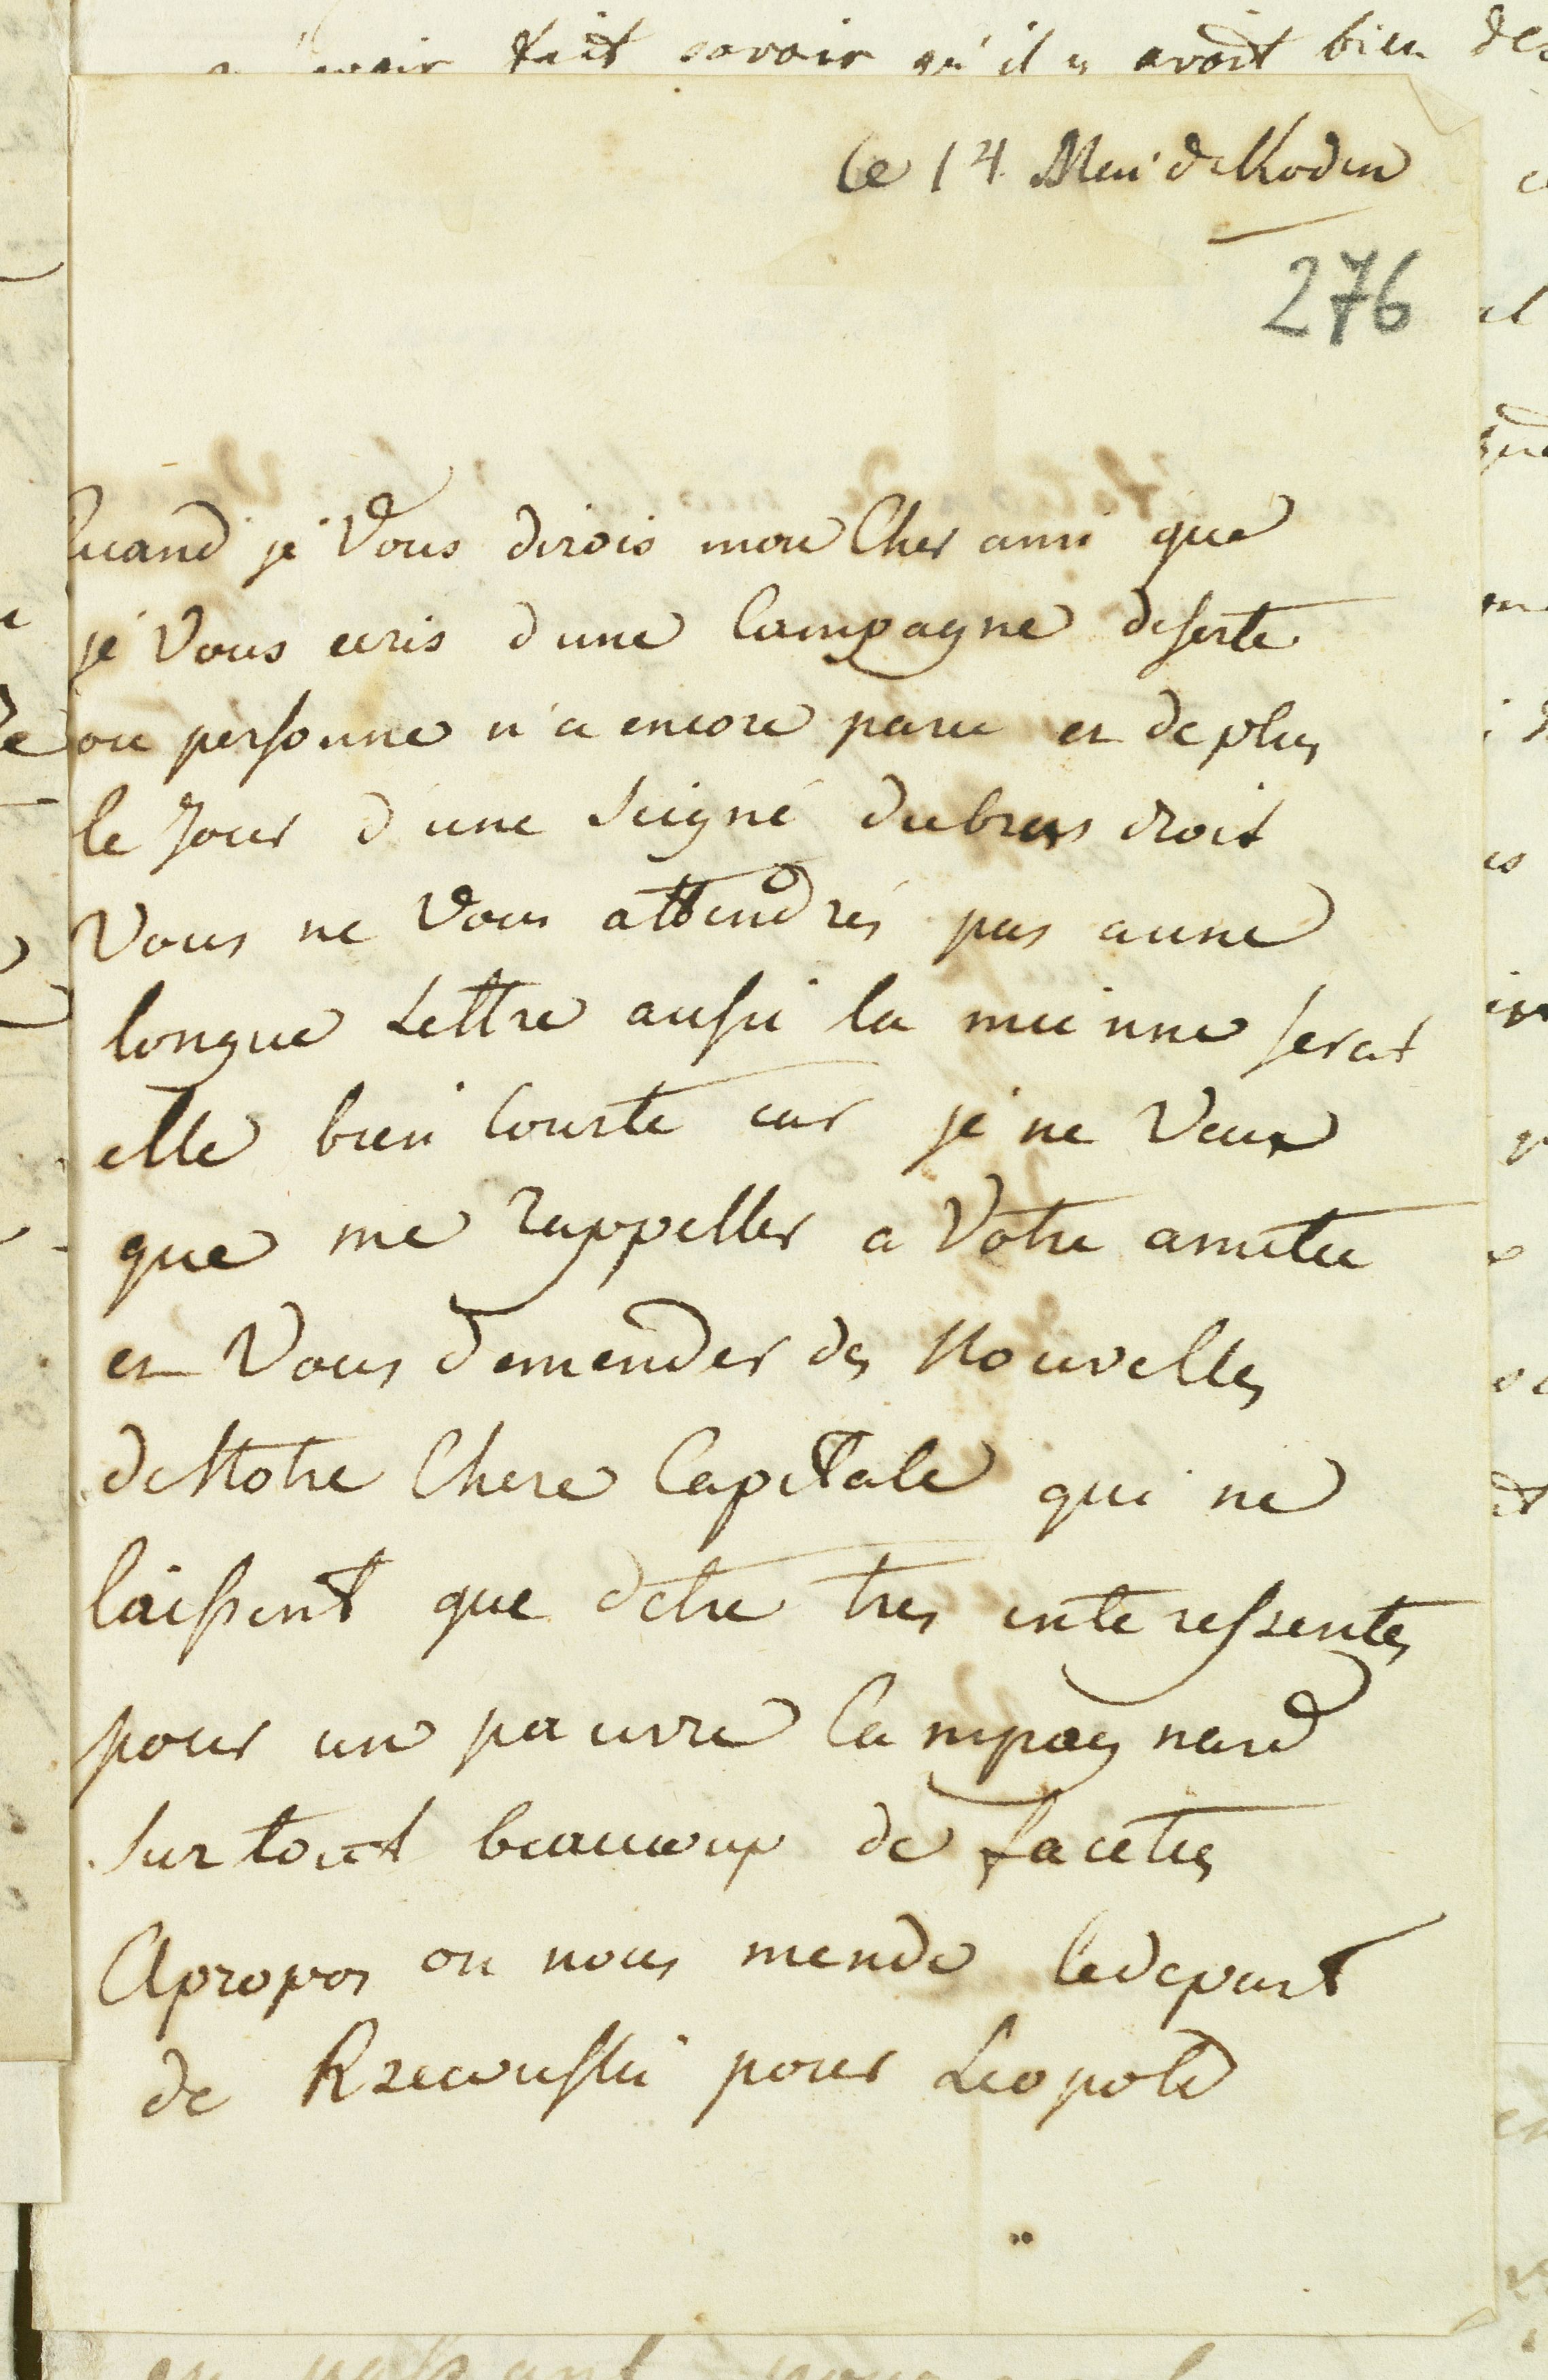 fait savoir qu'il y avoit bien des
le 14 Mai de Kodin
276
Quand je Vous dirois mon Cher ami que
je Vous ecris d une Campagne deserte
ou personne n'a encore paru et de plus
le Jour d'une seigné du bras droit
Vous ne Vous attendrés pas a une
longue Lettre aussi la mienne serat
elle bien Courte car je ne Veux
que me rappeller a Votre amitie
et Vous demender des Nouvelles
de Notre Chere Capitale qui ne
laissent que d etre tres interessentes
pour un pauvre Campagnard
sur tout beaucoup de faceties
Apropos on nous mende le depart
de Rzewuski pour Leopold